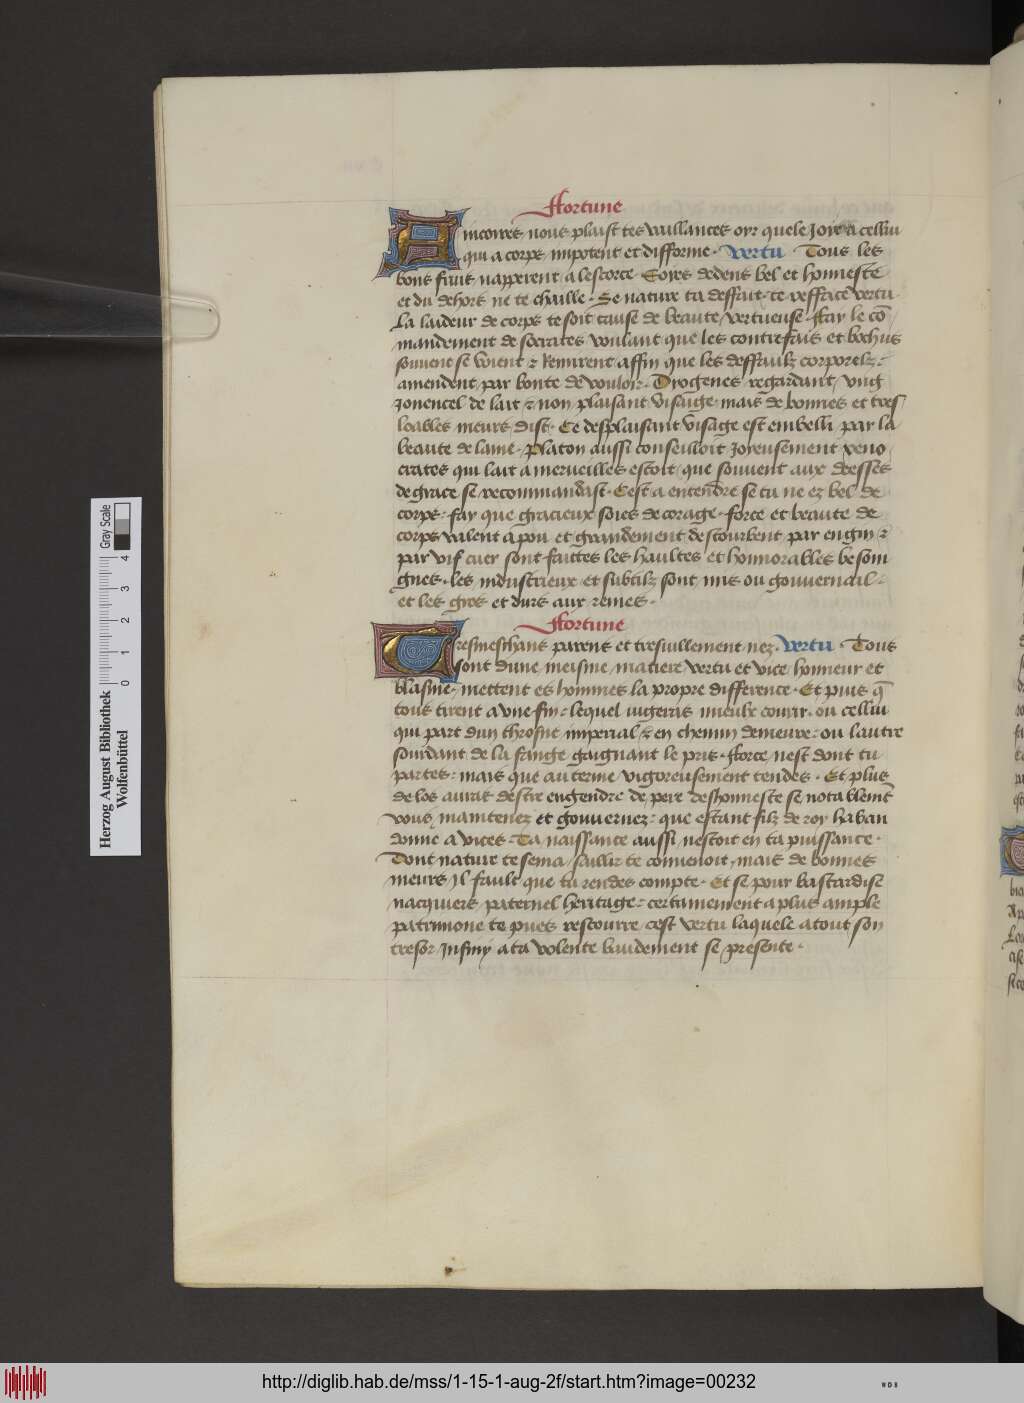 ffortune
Aincores nous plaist tes vaillances oyr quele Joye a cellui
qui a corps impotent et difforme · Vertu · Tous les
bons fruis napperent a lescorce · Soies dedens bel et honneste
et du dehors ne te chaille · Se nature ta deffait te refface vertu ·
La laideur de corps te soit cause de beaute vertueuse · ffay le cō
mandement de socrates voulant que les contrefais et bochus
souvent se voient ⁊ remirent affin que les deffaulz corporelz
amendent par bonte de vouloir · Dyogenes regardant ung
Jonencel de lait ⁊ non plaisant visaige mais de bonnes et tres
loables meurs dist · Ce desplaisant visage est embelli par la
beaute de lame · Platon aussi conseilloit Joyeusement xeno
crates qui lait a merveilles estoit que souvent aux deesses
de grace se recommandast · Cest a entendre se tu ne ez bel de
corps · fay que gracieux soies de corage · force et beaute de
corps valent a pou et grandement destourbent par engin ⁊
par vif cuer sont faittes les haultes et honnorables besoin
gnes · les industrieux et subtilz sont mis ou gouvernail
et les gros et durs aux remes ·
ffortune
Tresmeschans parens et tresvillement nez · Vertu · Tous
sont dune meisme matiere vertu et vice honneur et
blasme mettent es hommes la propre difference · Et puis q̄
tous tirent a une fin lequel jugeras mieulx courir · ou cellui
qui part dun throsne imperial ⁊ en chemin demeure ou lautre
sourdant de la fange gaignant le pris · fforce nest dont tu
partes mais que au terme vigoreusement tendes · Et plus
de los auras destre engendre de pere deshonneste se notablemēt
vous maintenez et gouvernez que estant filz de roy haban
donne a vices · Ta naissance aussi nestoit en ta puissance ·
Dont nature te sema saillir te convenoit mais de bonnes
meurs Il fault que tu rendes compte · Et se pour bastardise
nacquiers paternel heritage certainement a plus ample
patrimone te pues rescourre cest vertu laquele atout son
tresor Infiny a ta volente baudement se presente ·
Herzog August Bibliothek
Wolfenbüttel
0 1 2 3 4
Gray Scale
http://diglib.hab.de/mss/1-15-1-aug-2f/start.htm?image=00232